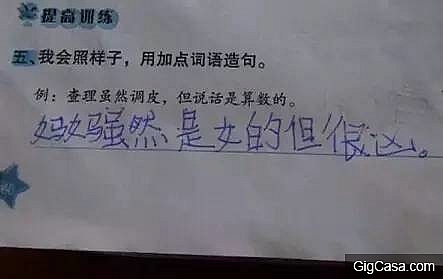 提高训练
五、我会照样子，用加点词语造句。
例：查理虽然调皮，但说话是算数的。
妈妈虽然是女的但很凶。
GigCasa.com